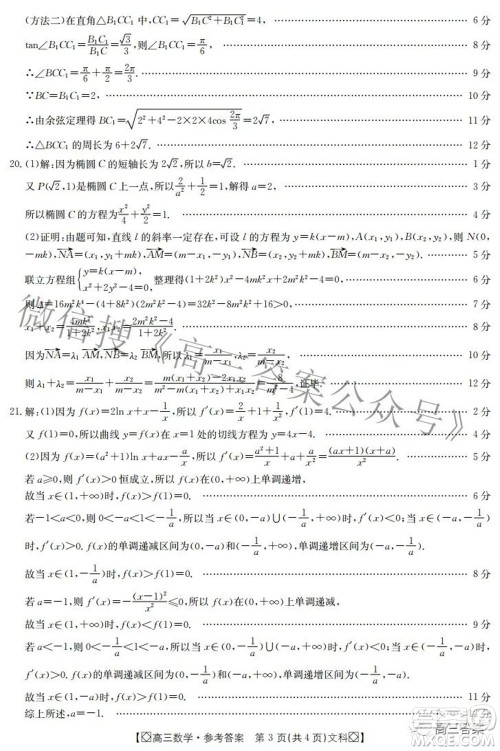 (方法二)在直角△B₁CC₁中,CC₁=√(B₁C²+B₁C₁²)=4, 6分
tan∠B₁CC₁=B₁C₁/B₁C=√3/3,则∠B₁CC₁=π/6, 8分
∴∠BCC₁=π/6+π/2=2π/3. 9分
∵BC=B₁C₁=2, 10分
∴由余弦定理得BC₁=√(2²+4²-2×2×4cos 2π/3)=2√7, 11分
∴△BCC₁的周长为6+2√7. 12分
20.(1)解:因为椭圆C的短轴长为2√2,所以b=√2. 1分
又P(√2,1)是椭圆C上一点,所以2/a²+1/2=1,解得a=2, 3分
所以椭圆C的方程为x²/4+y²/2=1. 4分
(2)证明:由题可知,直线l的斜率一定存在,可设l的方程为y=k(x-m),A(x₁,y₁),B(x₂,y₂),则N(0,
-mk),NA=(x₁,y₁+mk),AM=(m-x₁,-y₁),NB=(x₂,y₂+mk),BM=(m-x₂,-y₂). 5分
联立方程组{y=k(x-m), x²+2y²-4=0,整理得(1+2k²)x²-4mk²x+2m²k²-4=0, 6分
则Δ=16m²k⁴-(4+8k²)(2m²k²-4)=32k²-8m²k²+16>0, 7分
x₁+x₂=4mk²/(1+2k²),x₁x₂=(2m²k²-4)/(1+2k²). 8分
因为NA=λ₁AM,NB=λ₂BM,所以λ₁=x₁/(m-x₁),λ₂=x₂/(m-x₂), 10分
12分
21.解:(1)因为f(x)=2ln x+x-1/x,所以f′(x)=2/x+1+1/x²,f′(1)=4. 2分
又f(1)=0,所以曲线y=f(x)在x=1处的切线方程为y=4x-4. 4分
(2)因为f(x)=(a²+1)ln x+ax-a/x,所以f′(x)=(a²+1)/x+a+a/x²=(ax+1)(x+a)/x². 5分
若a≥0,则f′(x)>0恒成立,所以f(x)在(0,+∞)上单调递增,
故当x∈(1,+∞)时,f(x)>f(1)=0. 6分
若-1<a<0,则0<-a<1<-1/a,所以当x∈(0,-a)∪(-1/a,+∞)时,f′(x)<0,当x∈(-a,-1/a)
时,f′(x)>0.f(x)的单调递减区间为(0,-a)和(-1/a,+∞),单调递增区间为(-a,-1/a).
故当x∈(1,-1/a)时,f(x)>f(1)=0. 8分
若a=-1,则f′(x)=-(x-1)²/x²≤0,所以f(x)在(0,+∞)上单调递减,
故当x∈(1,+∞)时,f(x)<f(1)=0. 9分
若a<-1,则0<-1/a<1<-a,所以当x∈(0,-1/a)∪(-a,+∞)时,f′(x)<0,当x∈(-1/a,-a)
时,f′(x)>0.f(x)的单调递减区间为(0,-1/a)和(-a,+∞),单调递增区间为(-1/a,-a).
故当x∈(1,-a)时,f(x)>f(1)=0. 11分
【高三数学·参考答案 第3页(共4页)文科】
微信搜《高三答案公众号》
高三答案